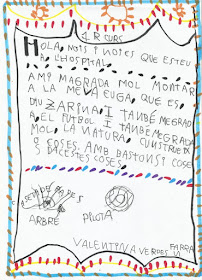 1R CURS
HOLA, NOIS I NOIES QUE ESTEU
A L'HOSPITAL.
AMI MAGRADA MOL MONTAR
A LA MEVA EUGA, QUE ES
DIU ZARINA I TANBÉ MEGRADA
EL FUTBOL I TANBÉ MEGRADA
MOL, LA NATURA, CONSTRUEIX
COSES, AMB BASTONS I COSES
SICESTES COSES
ARBRE
PILOTA
VALENTINA VERDES